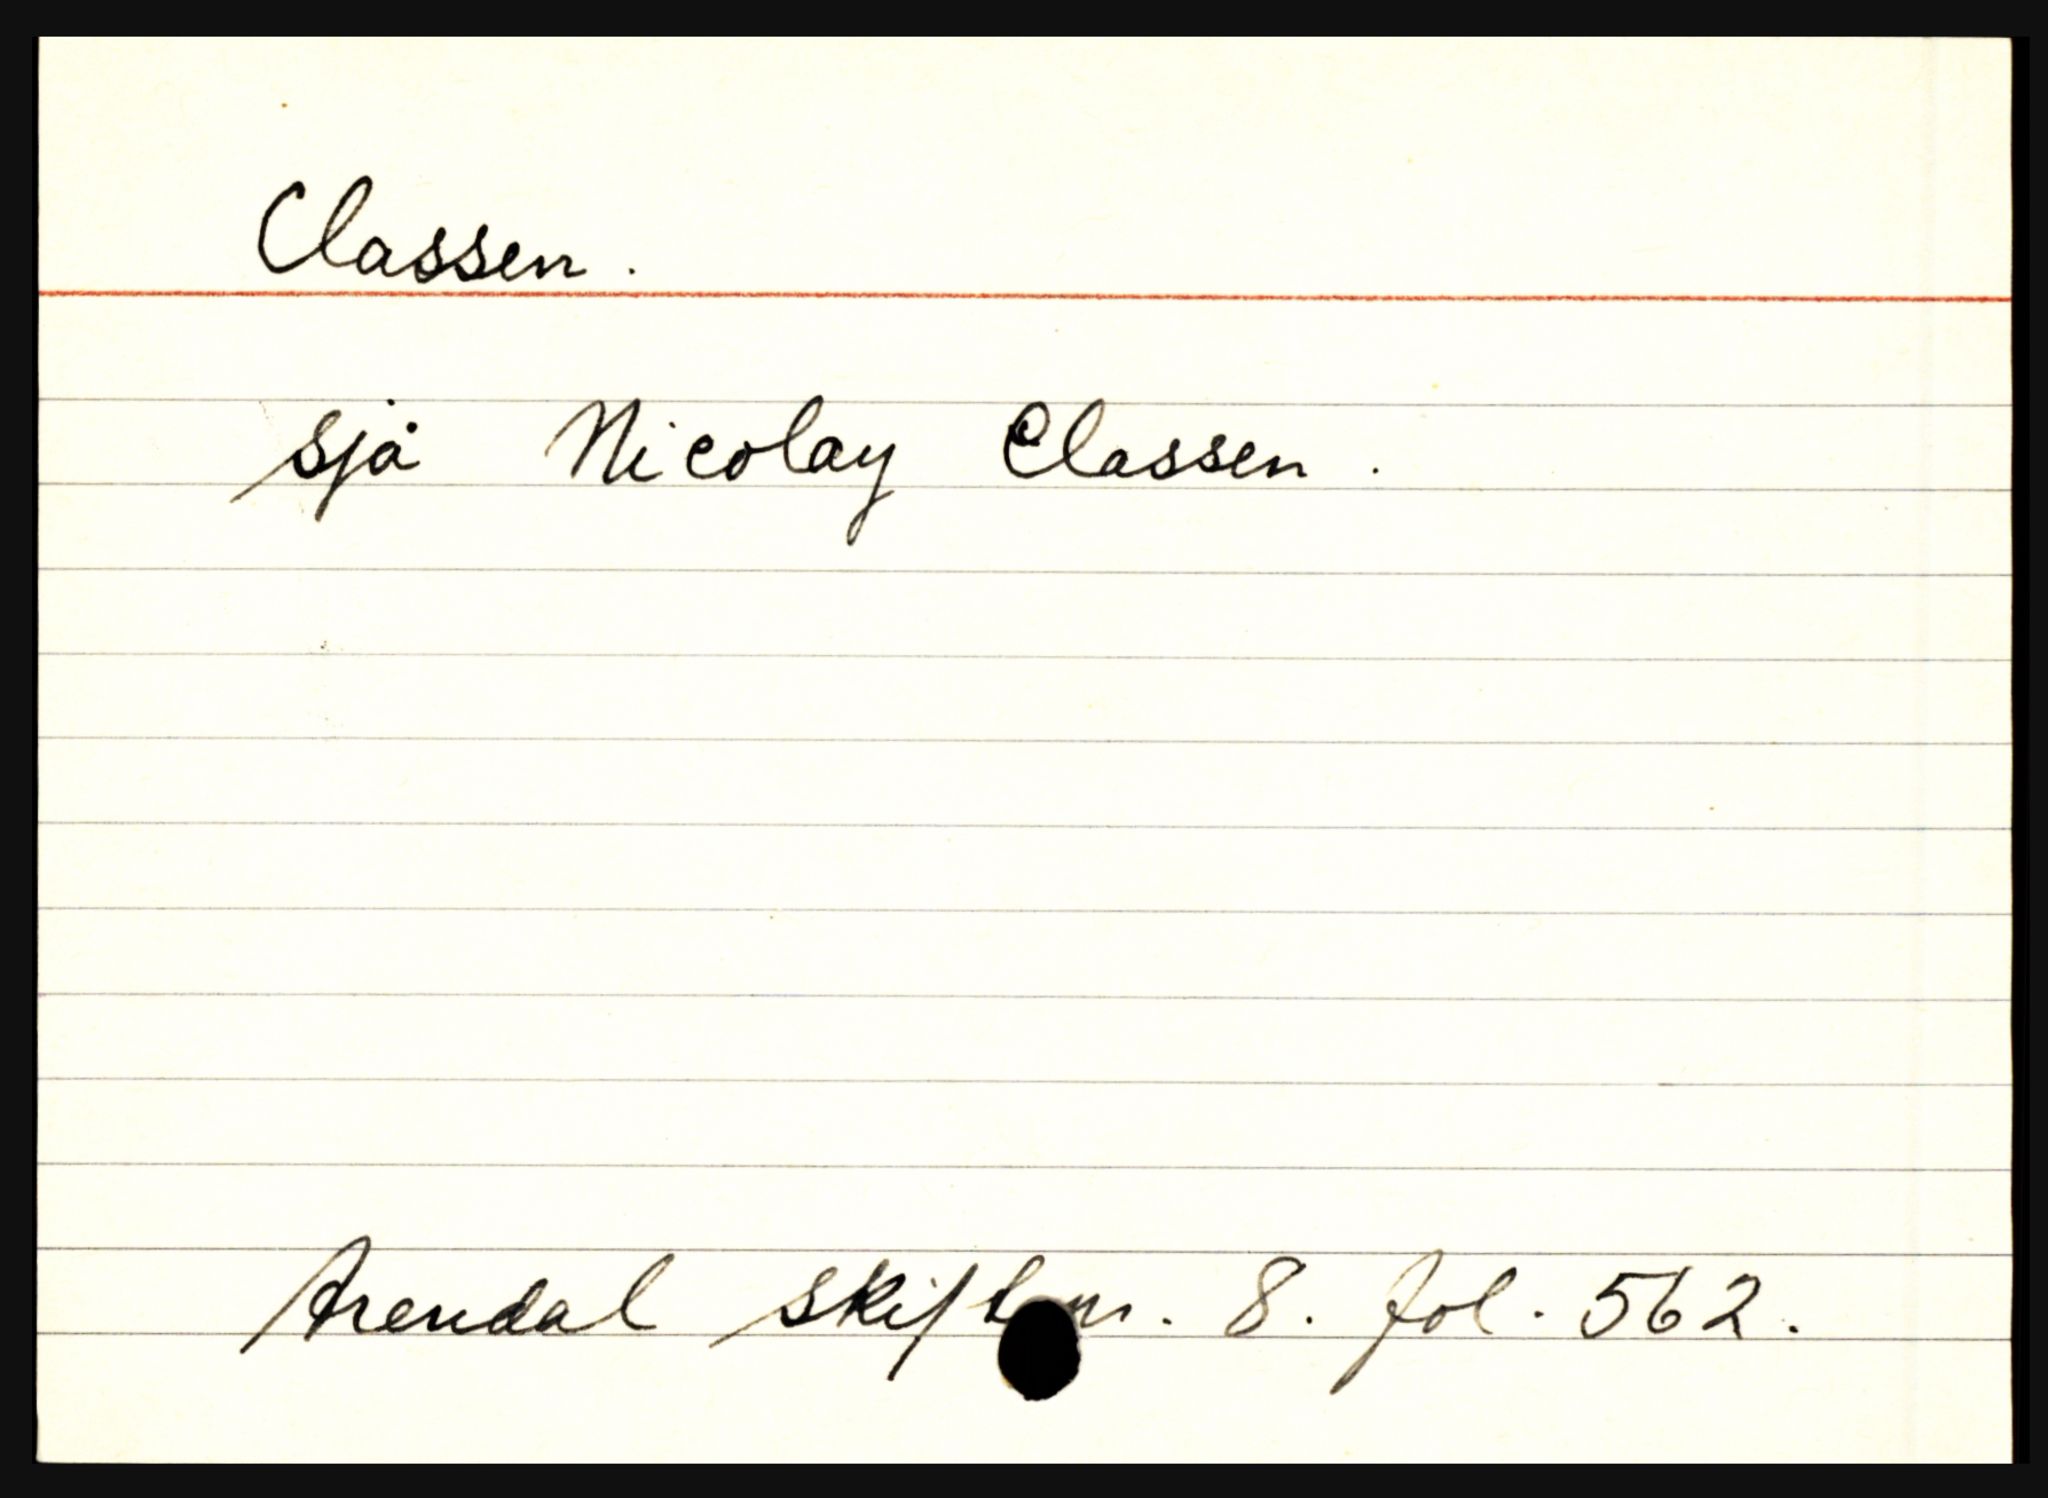 Classen.
sjå Nicolay Classen.
Arendal skift nr. 8. fol. 562.